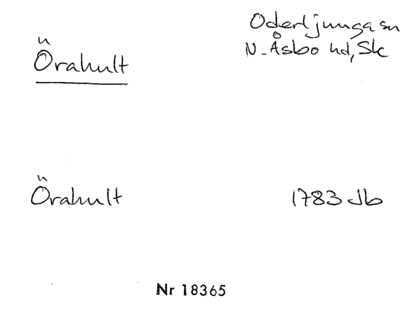 Örahult
Oderljunga sn
N. Åsbo hd, Sk
Örahult
1783 Jb
Nr 18365